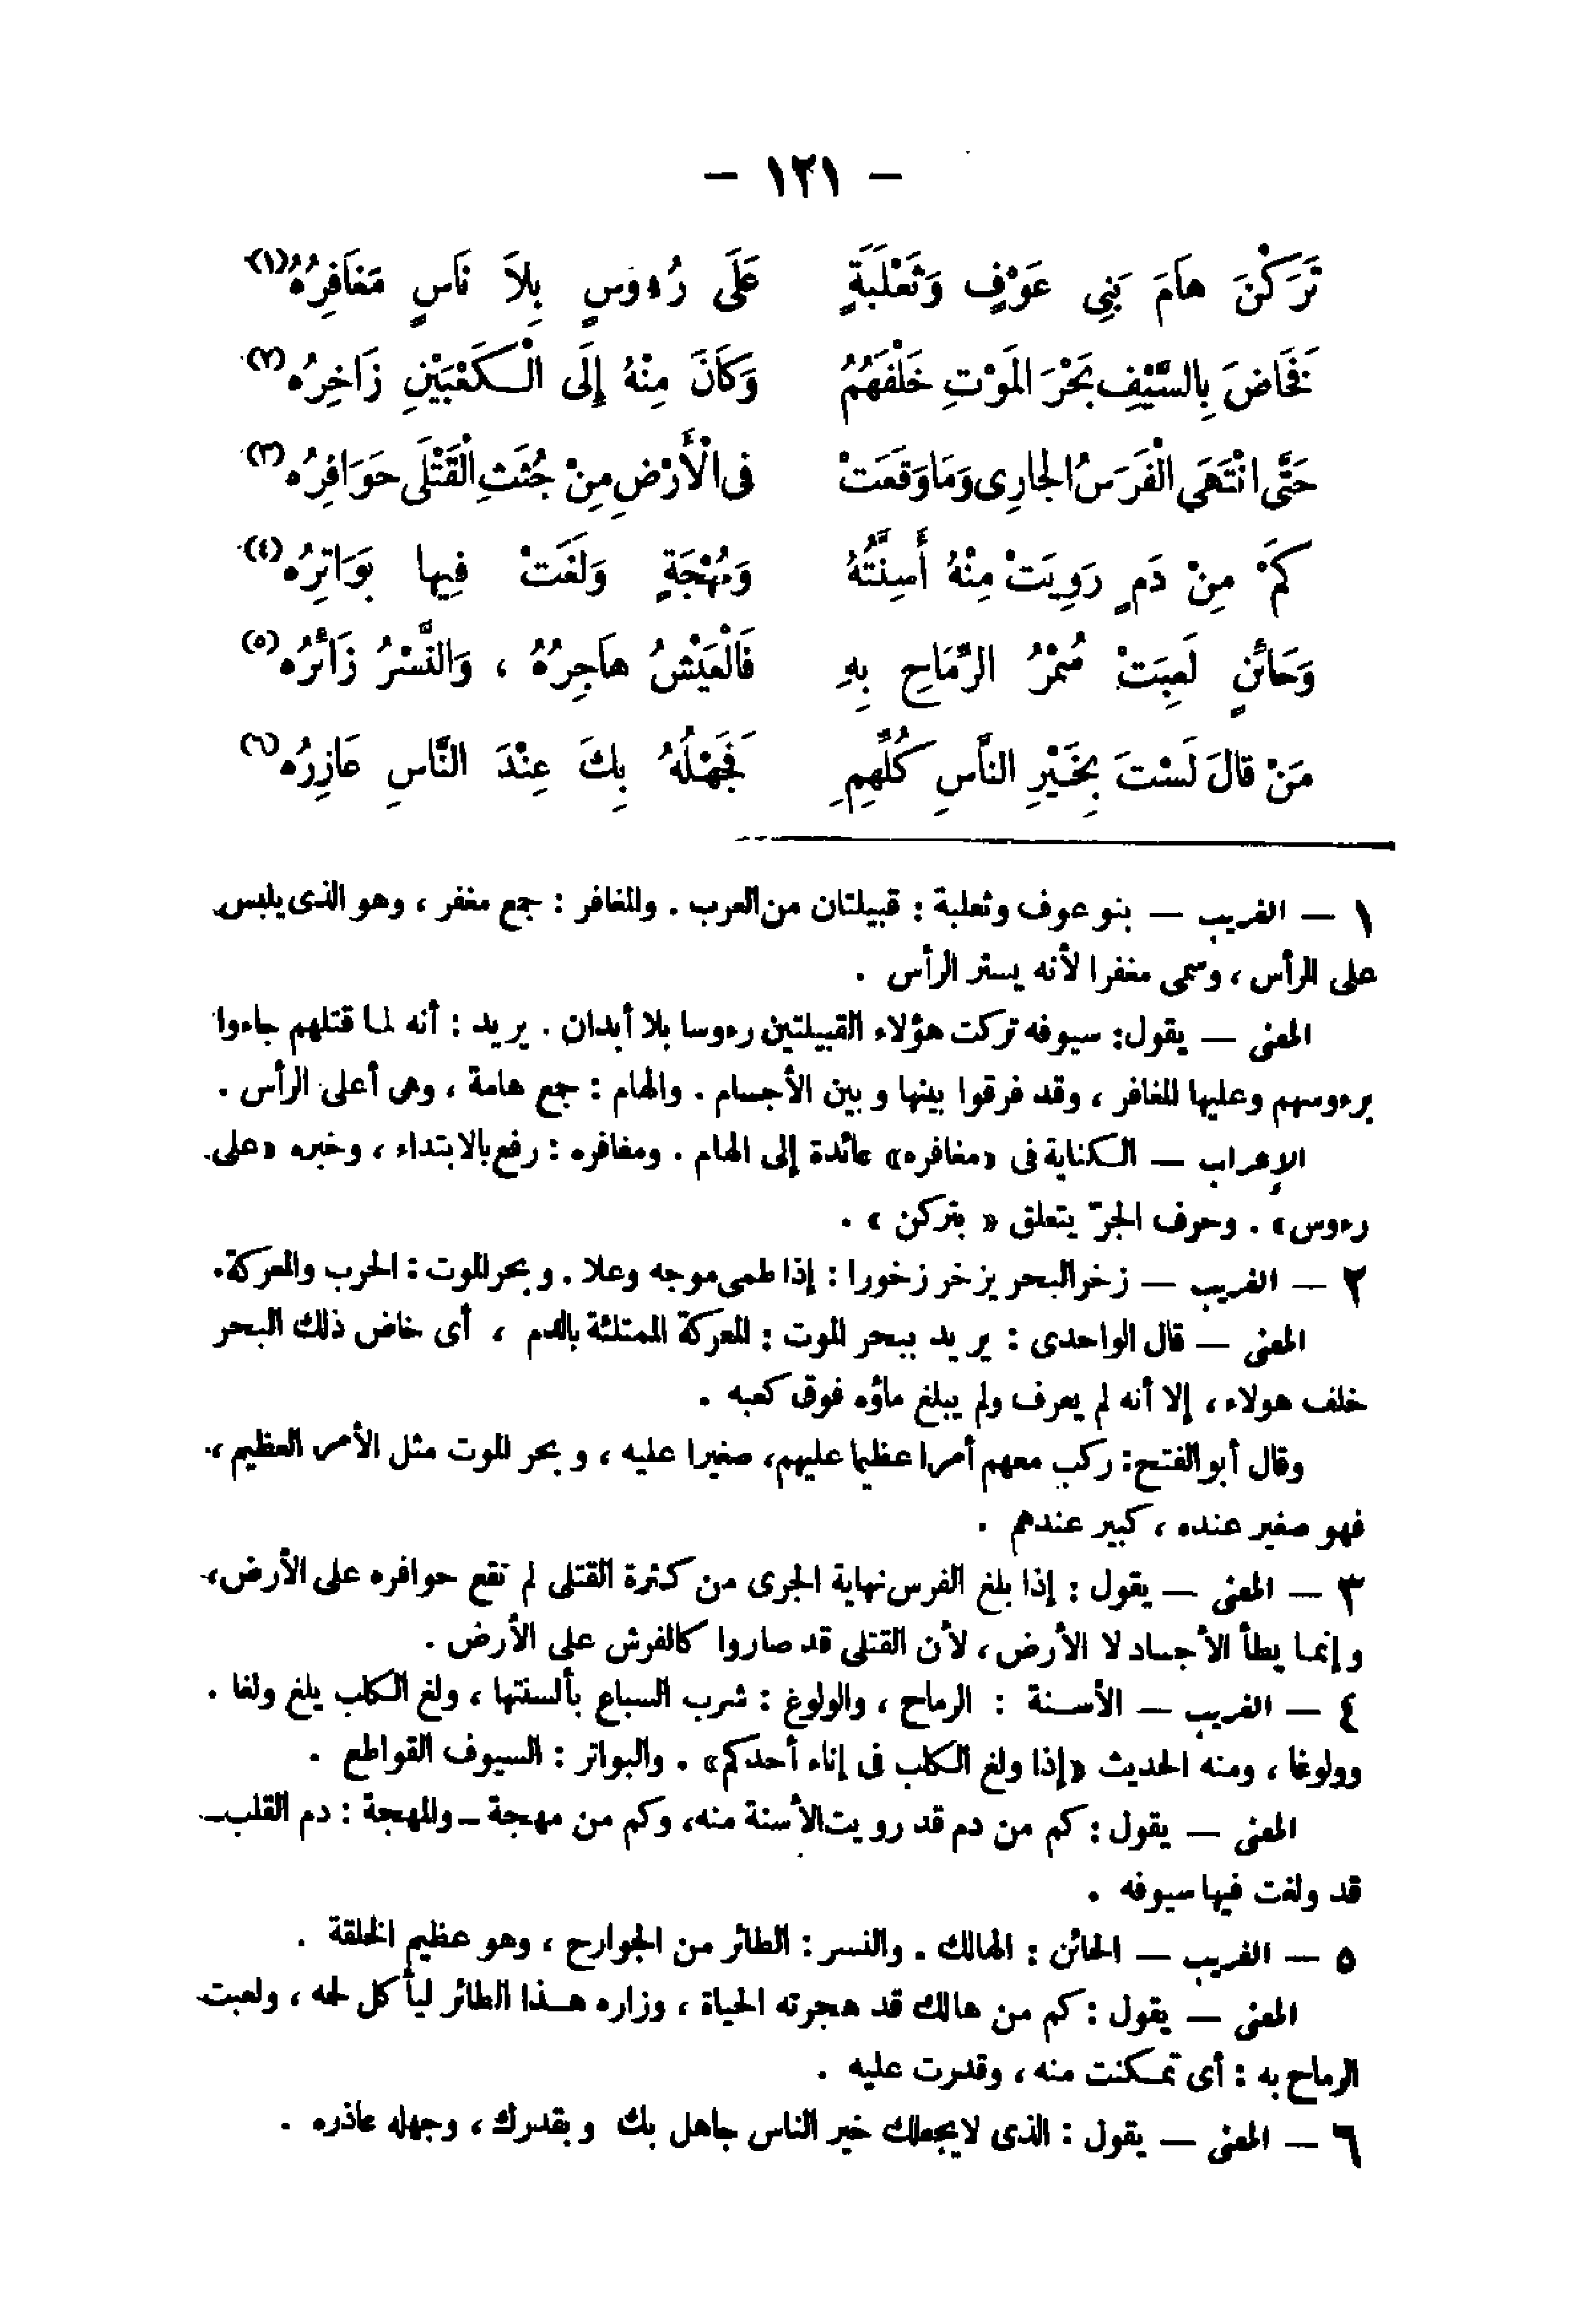 — ١٢١ —
تَرَكْنَ هامَ بَنِى عَوْفٍ وَثَعْلَبَةٍ عَلَى رُءوسٍ بِلاَ نَاسٍ مَغَافِرُهُ(١)
فَخَاضَ بِالسَّيْفِ بَحْرَ المَوْتِ خَلْفَهُمُ وَكَانَ مِنْهُ إِلَى الْكَعْبَيْنِ زَاخِرُه(٢)
حَتَّى انْتَهَى الْفَرَسُ الجارِى وَمَا وَقَعَتْ فى الْأَرْضِ مِنْ جُثَثِ الْقَتْلَى حَوَافِرُه(٣)
كَمْ مِنْ دَمٍ رَوِيَتْ مِنْهُ أَسِنَّتُهُ وَمُهْجَةٍ وَلَغَتْ فِيها بَوَاتِرُه(٤)
وَحَائنٍ لَعِبَتْ سُمْرُ الرِّمَاحِ بِهِ فَالْعَيْشُ هاَجِرُهُ ، وَالنَّسْرُ زَائرُه(٥)
مَنْ قالَ لَسْتَ بِخَيْرِ النَّاسِ كُلِّهِمِ فَجَهْلُهُ بِكَ عِنْدَ النَّاسِ عَاذِرُه(٦)
١ — الغريب — بنو عوف وثعلبة : قبيلتان من العرب . والمغافر : جمع مغفر ، وهو الذى يلبس
على الرأس ، وسمى مغفرا لأنه يستر الرأس .
المعنى — يقول : سيوفه تركت هؤلاء القبيلتين رءوسا بلا أبدان . يريد : أنه لما قتلهم جاءوا
برءوسهم وعليها المغافر ، وقد فرقوا بينها وبين الأجسام . والهام : جمع هامة ، وهى أعلى الرأس .
الإعراب — الكناية فى «مغافره» عائدة إلى الهام . ومغافره : رفع بالابتداء ، وخبره «على
رءوس» . وحرف الجرّ يتعلق « بتركن » .
٢ — الغريب — زخر البحر يزخر زخورا : إذا طمى موجه وعلا . وبحر الموت : الحرب والمعركة .
المعنى — قال الواحدى : يريد ببحر الموت : المعركة الممتلئة بالدم ، أى خاض ذلك البحر
خلف هولاء ، إلا أنه لم يعرف ولم يبلغ ماؤه فوق كعبه .
وقال أبو الفتح : ركب معهم أمرا عظيما عليهم، صغيرا عليه ، وبحر الموت مثل الأمر العظيم ،
فهو صغير عنده ، كبير عندهم .
٣ — المعنى — يقول : إذا بلغ الفرس نهاية الجرى من كثرة القتلى لم تقع حوافره على الأرض،
وإنما يطأ الأجساد لا الأرض ، لأن القتلى قد صاروا كالفرش على الأرض .
٤ — الغريب — الأسنة : الرماح ، والولوغ : شرب السباع بألسنتها ، ولغ الكلب يلغ ولغا .
وولوغا ، ومنه الحديث «إذا ولغ الكلب فى إناء أحدكم» . والبواتر : السيوف القواطع .
المعنى — يقول : كم من دم قد رويت الأسنة منه، وكم من مهجة ــ والمهجة : دم القلب ــ
قد ولغت فيها سيوفه .
٥ — الغريب — الحائن : الهالك . والنسر : الطائر من الجوارح ، وهو عظيم الخلقة .
المعنى — يقول : كم من هالك قد هجرته الحياة ، وزاره هذا الطائر ليأكل لحمه ، ولعبت
الرماح به : أى تمكنت منه ، وقدرت عليه .
٦ — المعنى — يقول : الذى لا يجعلك خير الناس جاهل بك وبقدرك ، وجهله عاذره .